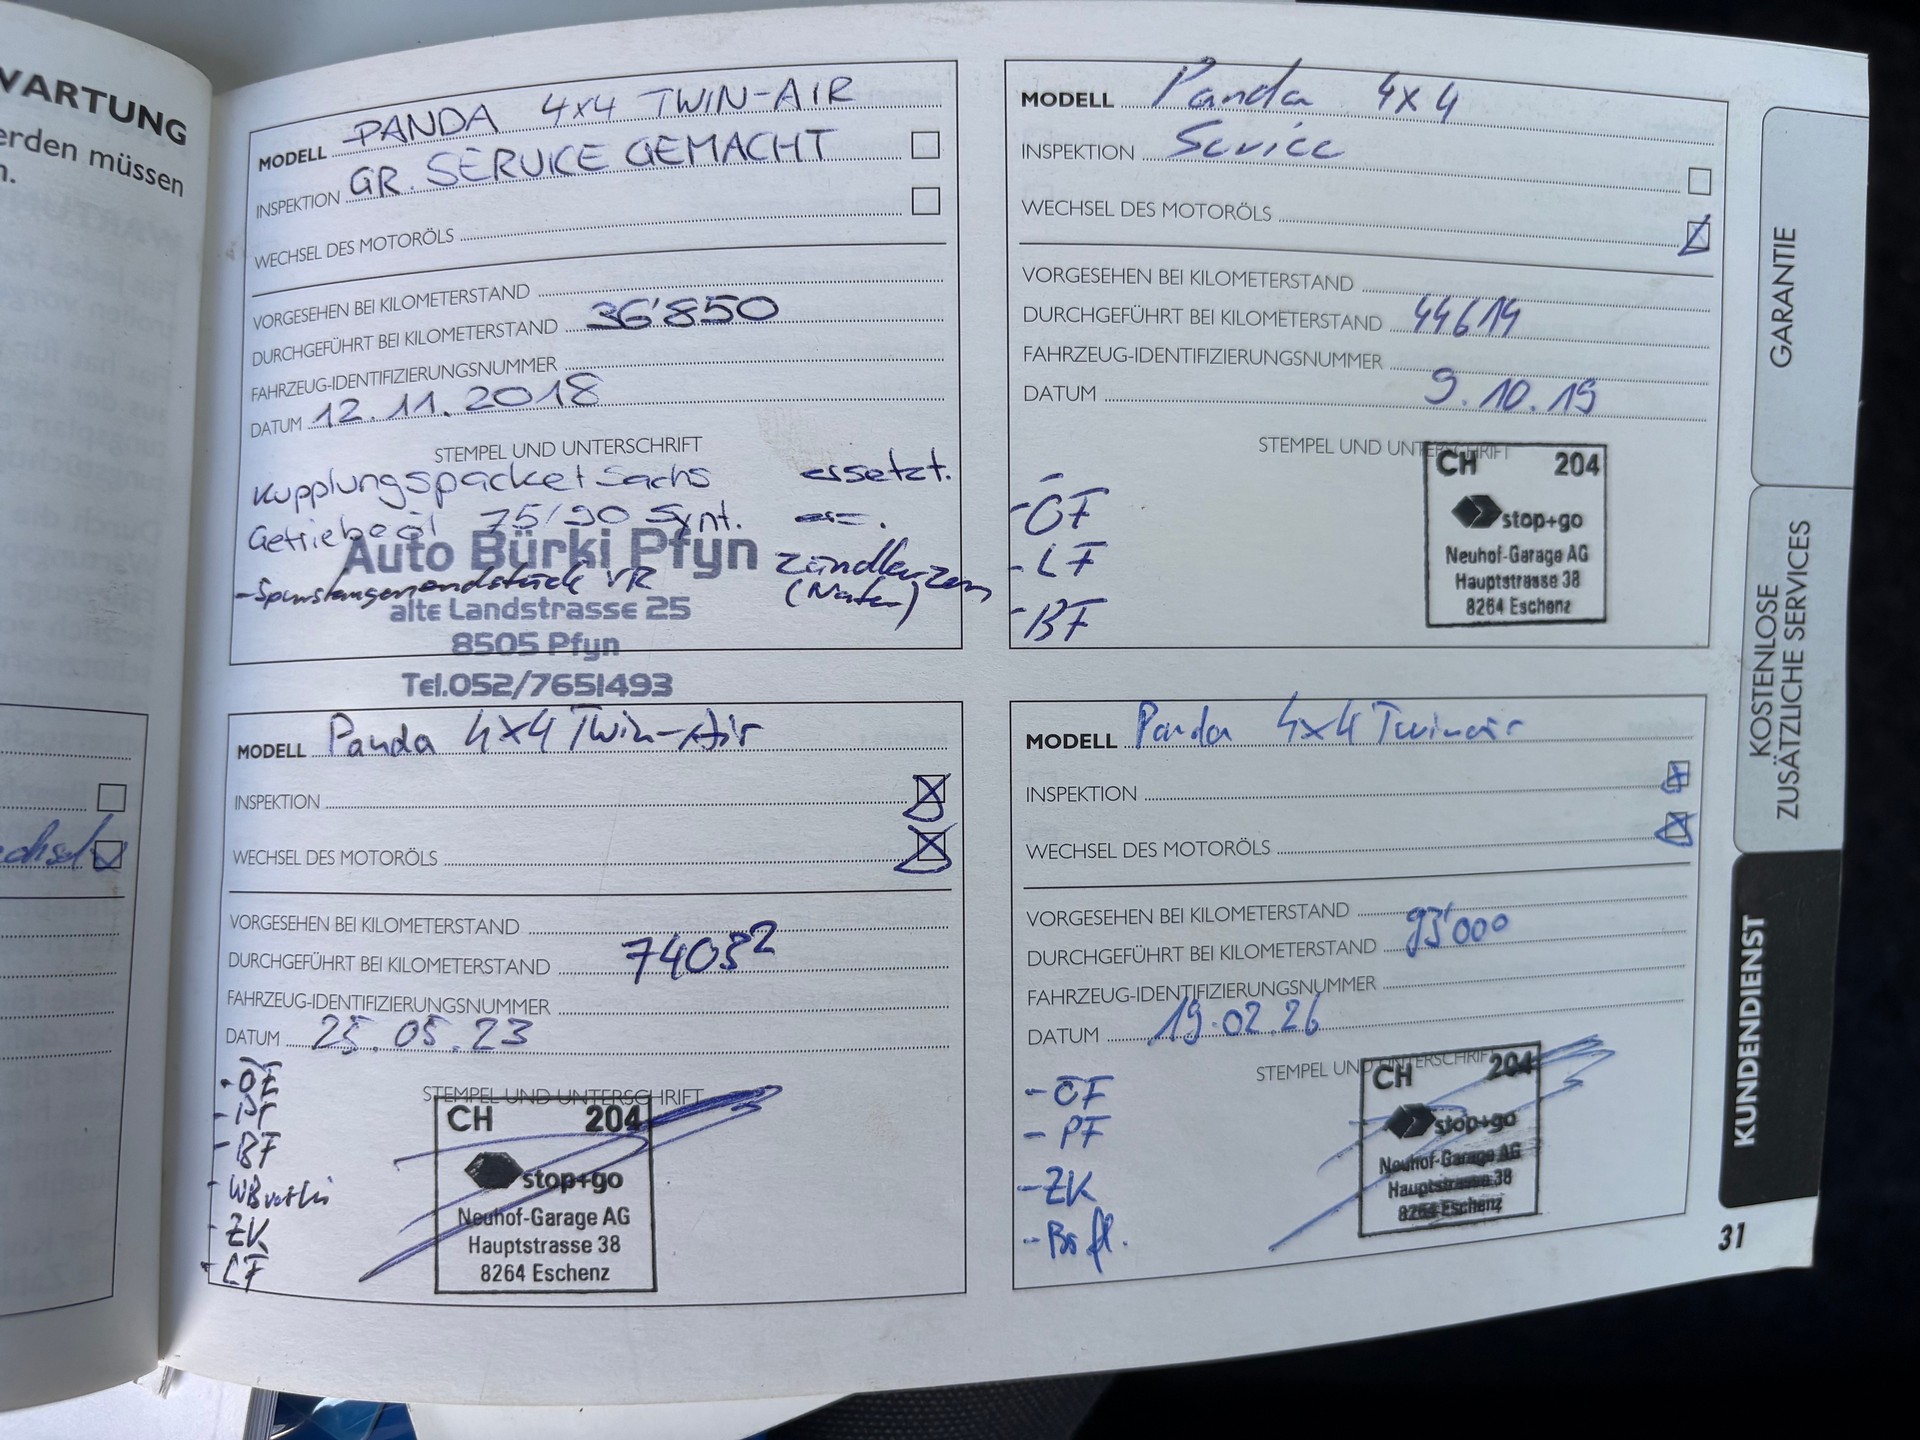 WARTUNG
erden müssen
n.
MODELL PANDA 4x4 TWIN-AIR
INSPEKTION GR. SERVICE GEMACHT
WECHSEL DES MOTORÖLS
VORGESEHEN BEI KILOMETERSTAND
DURCHGEFÜHRT BEI KILOMETERSTAND 36'850
FAHRZEUG-IDENTIFIZIERUNGSNUMMER
DATUM 12.11.2018
STEMPEL UND UNTERSCHRIFT
Kupplungspacket Sachs ersetzt.
Getriebeöl 75/90 Synt.
Auto Bürki Pfyn
Zündkerzen
- Spurstangenendstück VR
alte Landstrasse 25
8505 Pfyn
Tel.052/7651493
MODELL Panda 4x4
INSPEKTION Service
WECHSEL DES MOTORÖLS
VORGESEHEN BEI KILOMETERSTAND
DURCHGEFÜHRT BEI KILOMETERSTAND 44619
FAHRZEUG-IDENTIFIZIERUNGSNUMMER
DATUM 9.10.19
STEMPEL UND UNTERSCHRIFT
- ÖF
- LF
- BF
CH 204
stop+go
Neuhof-Garage AG
Hauptstrasse 38
8264 Eschenz
MODELL Panda 4x4 Twin-Air
INSPEKTION
WECHSEL DES MOTORÖLS
VORGESEHEN BEI KILOMETERSTAND
DURCHGEFÜHRT BEI KILOMETERSTAND 74032
FAHRZEUG-IDENTIFIZIERUNGSNUMMER
DATUM 25.05.23
STEMPEL UND UNTERSCHRIFT
- ÖF
- PF
- BF
- ZK
- LF
CH 204
stop+go
Neuhof-Garage AG
Hauptstrasse 38
8264 Eschenz
MODELL Panda 4x4 Twinair
INSPEKTION
WECHSEL DES MOTORÖLS
VORGESEHEN BEI KILOMETERSTAND
DURCHGEFÜHRT BEI KILOMETERSTAND 93'000
FAHRZEUG-IDENTIFIZIERUNGSNUMMER
DATUM 19.02.26
STEMPEL UND UNTERSCHRIFT
- ÖF
- PF
- ZK
- Bsfl.
CH 204
stop+go
Neuhof-Garage AG
Hauptstrasse 38
8264 Eschenz
GARANTIE
KOSTENLOSE
ZUSÄTZLICHE SERVICES
KUNDENDIENST
31